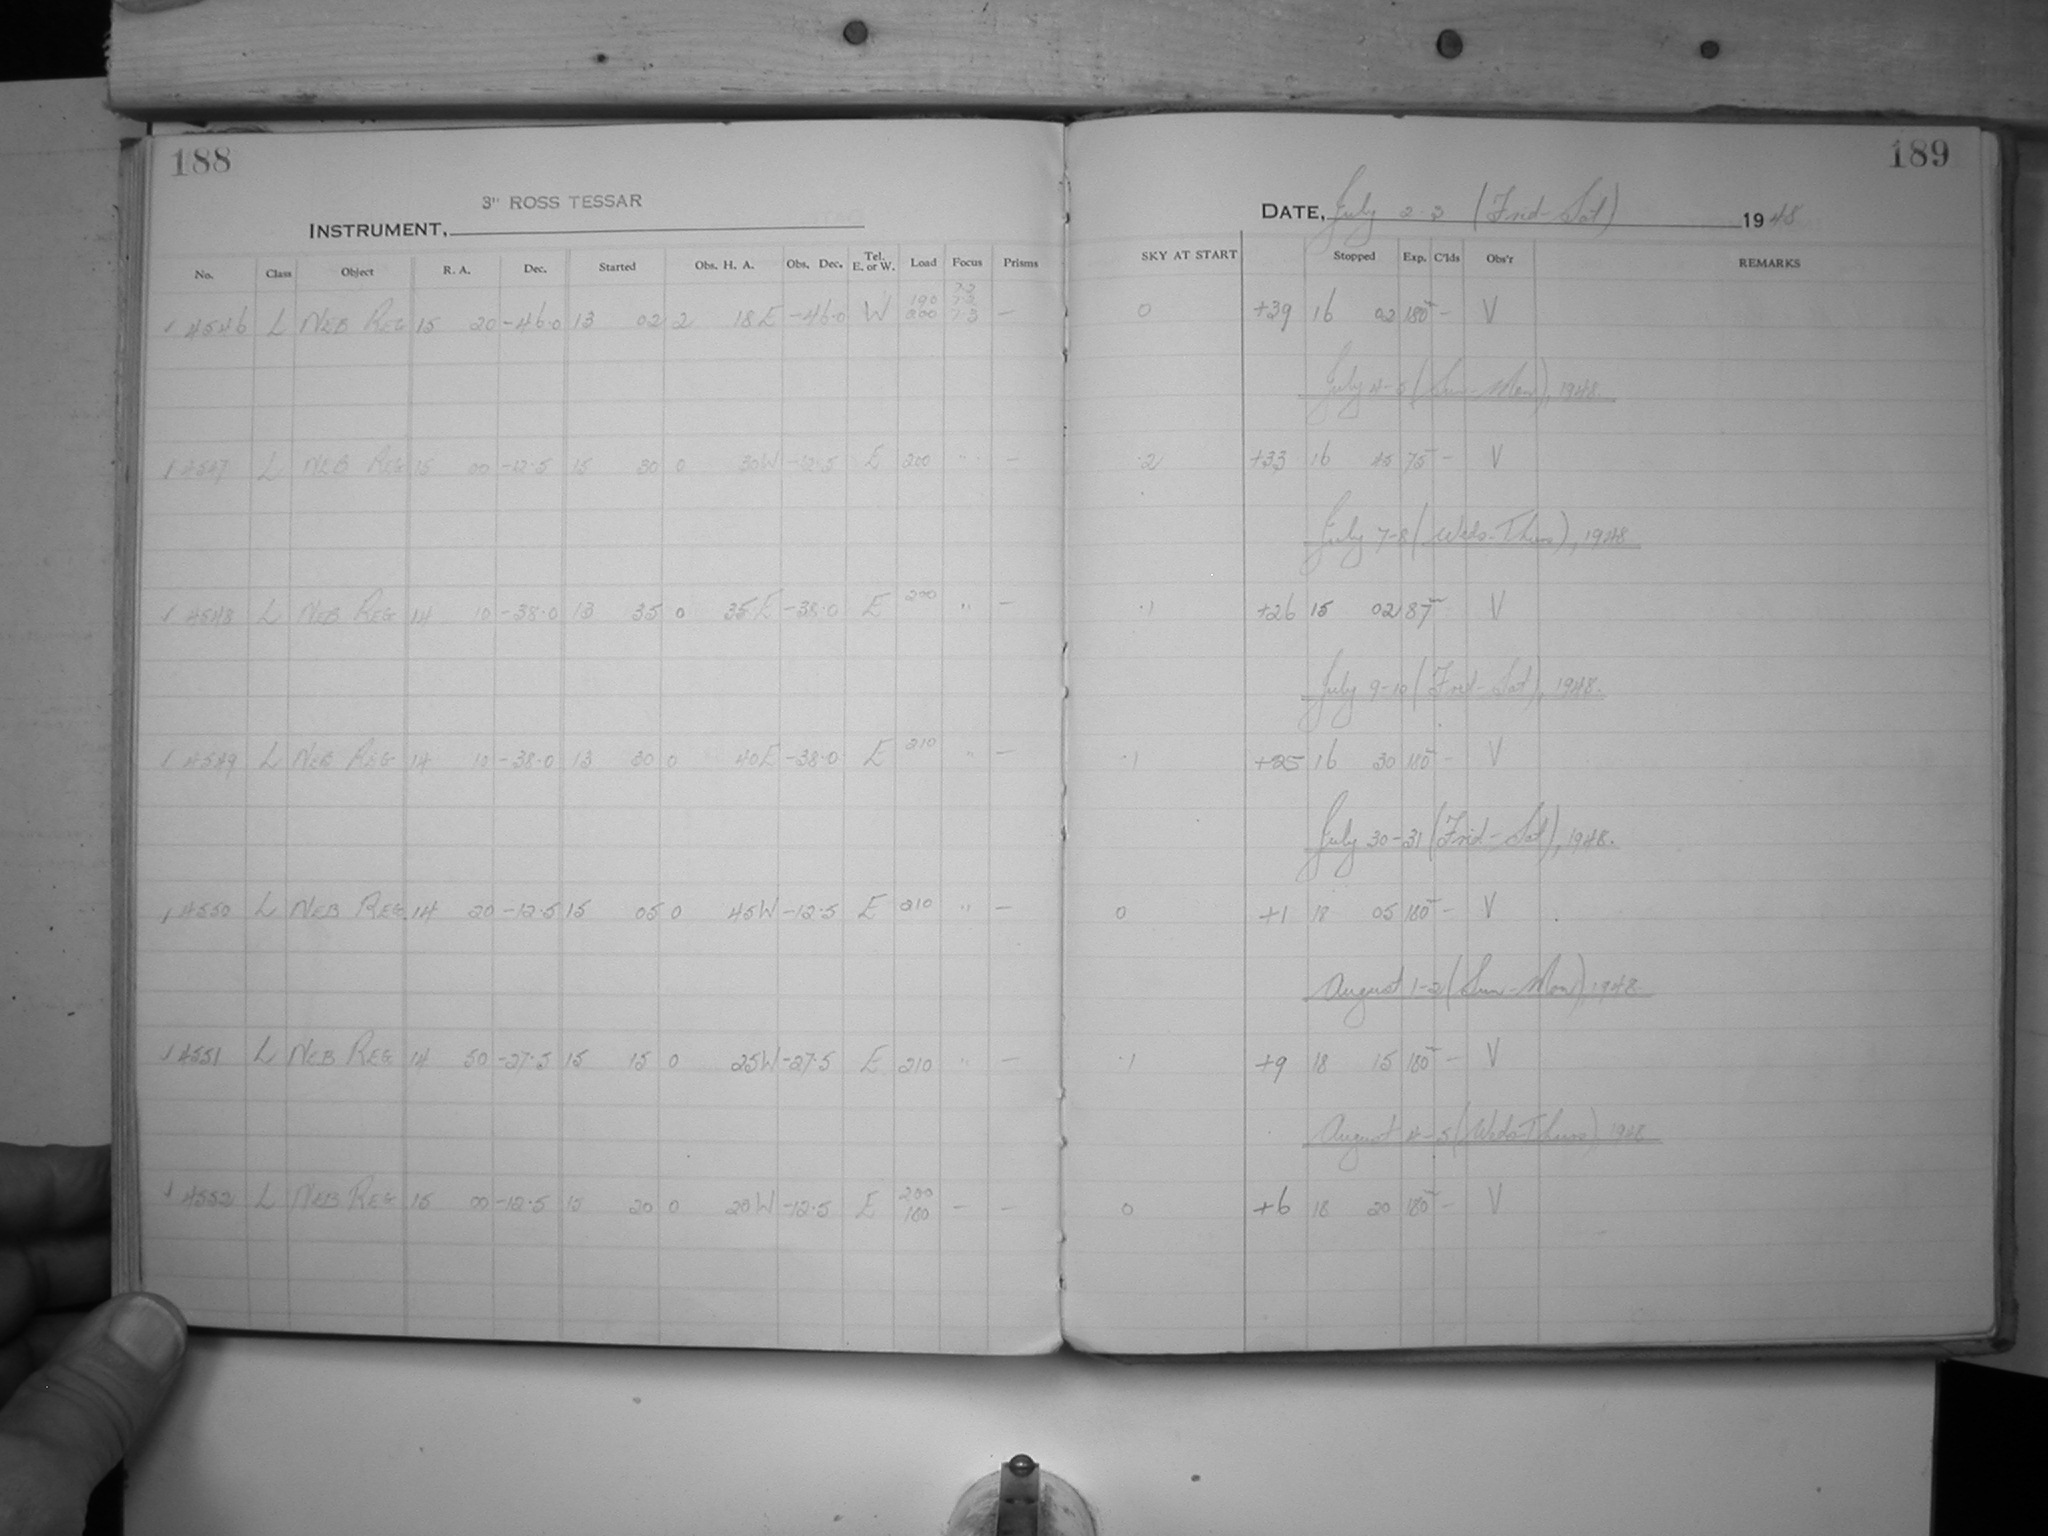 188
3" ROSS TESSAR
INSTRUMENT,
No. Class Object R. A. Dec. Started Obs. H. A. Obs. Dec. Tel. E. or W. Load Focus Prisms
4546 L NEB REG 15 20 -46.0 13 02 2 18 E -46.0 W 190 200 7.3 —
4547 L NEB REG 15 00 -12.5 15 30 0 30 W -12.5 E 200 " —
4548 L NEB REG 14 10 -38.0 13 35 0 35 E -38.0 E 200 " —
4549 L NEB REG 14 10 -38.0 13 30 0 40 E -38.0 E 210 " —
4550 L NEB REG 14 20 -12.5 15 05 0 45 W -12.5 E 210 " —
4551 L NEB REG 14 50 -27.5 15 15 0 25 W -27.5 E 210 " —
4552 L NEB REG 15 00 -12.5 15 20 0 20 W -12.5 E 200 180 — —
189
DATE, July 2-3 (Frid-Sat) 1948
SKY AT START Stopped Exp. C'lds Obs'r REMARKS
0 +39 16 02 180 - V
July 4-5 (Sun-Mon), 1948.
.2 +33 16 45 75 - V
July 7-8 (Weds-Thurs), 1948
.1 +26 15 02 87 V
July 9-10 (Frid-Sat), 1948.
.1 +25 16 30 180 - V
July 30-31 (Frid-Sat), 1948.
0 +1 18 05 180 - V
August 1-2 (Sun-Mon), 1948
.1 +9 18 15 180 - V
August 4-5 (Weds-Thurs) 1948
0 +6 18 20 180 - V